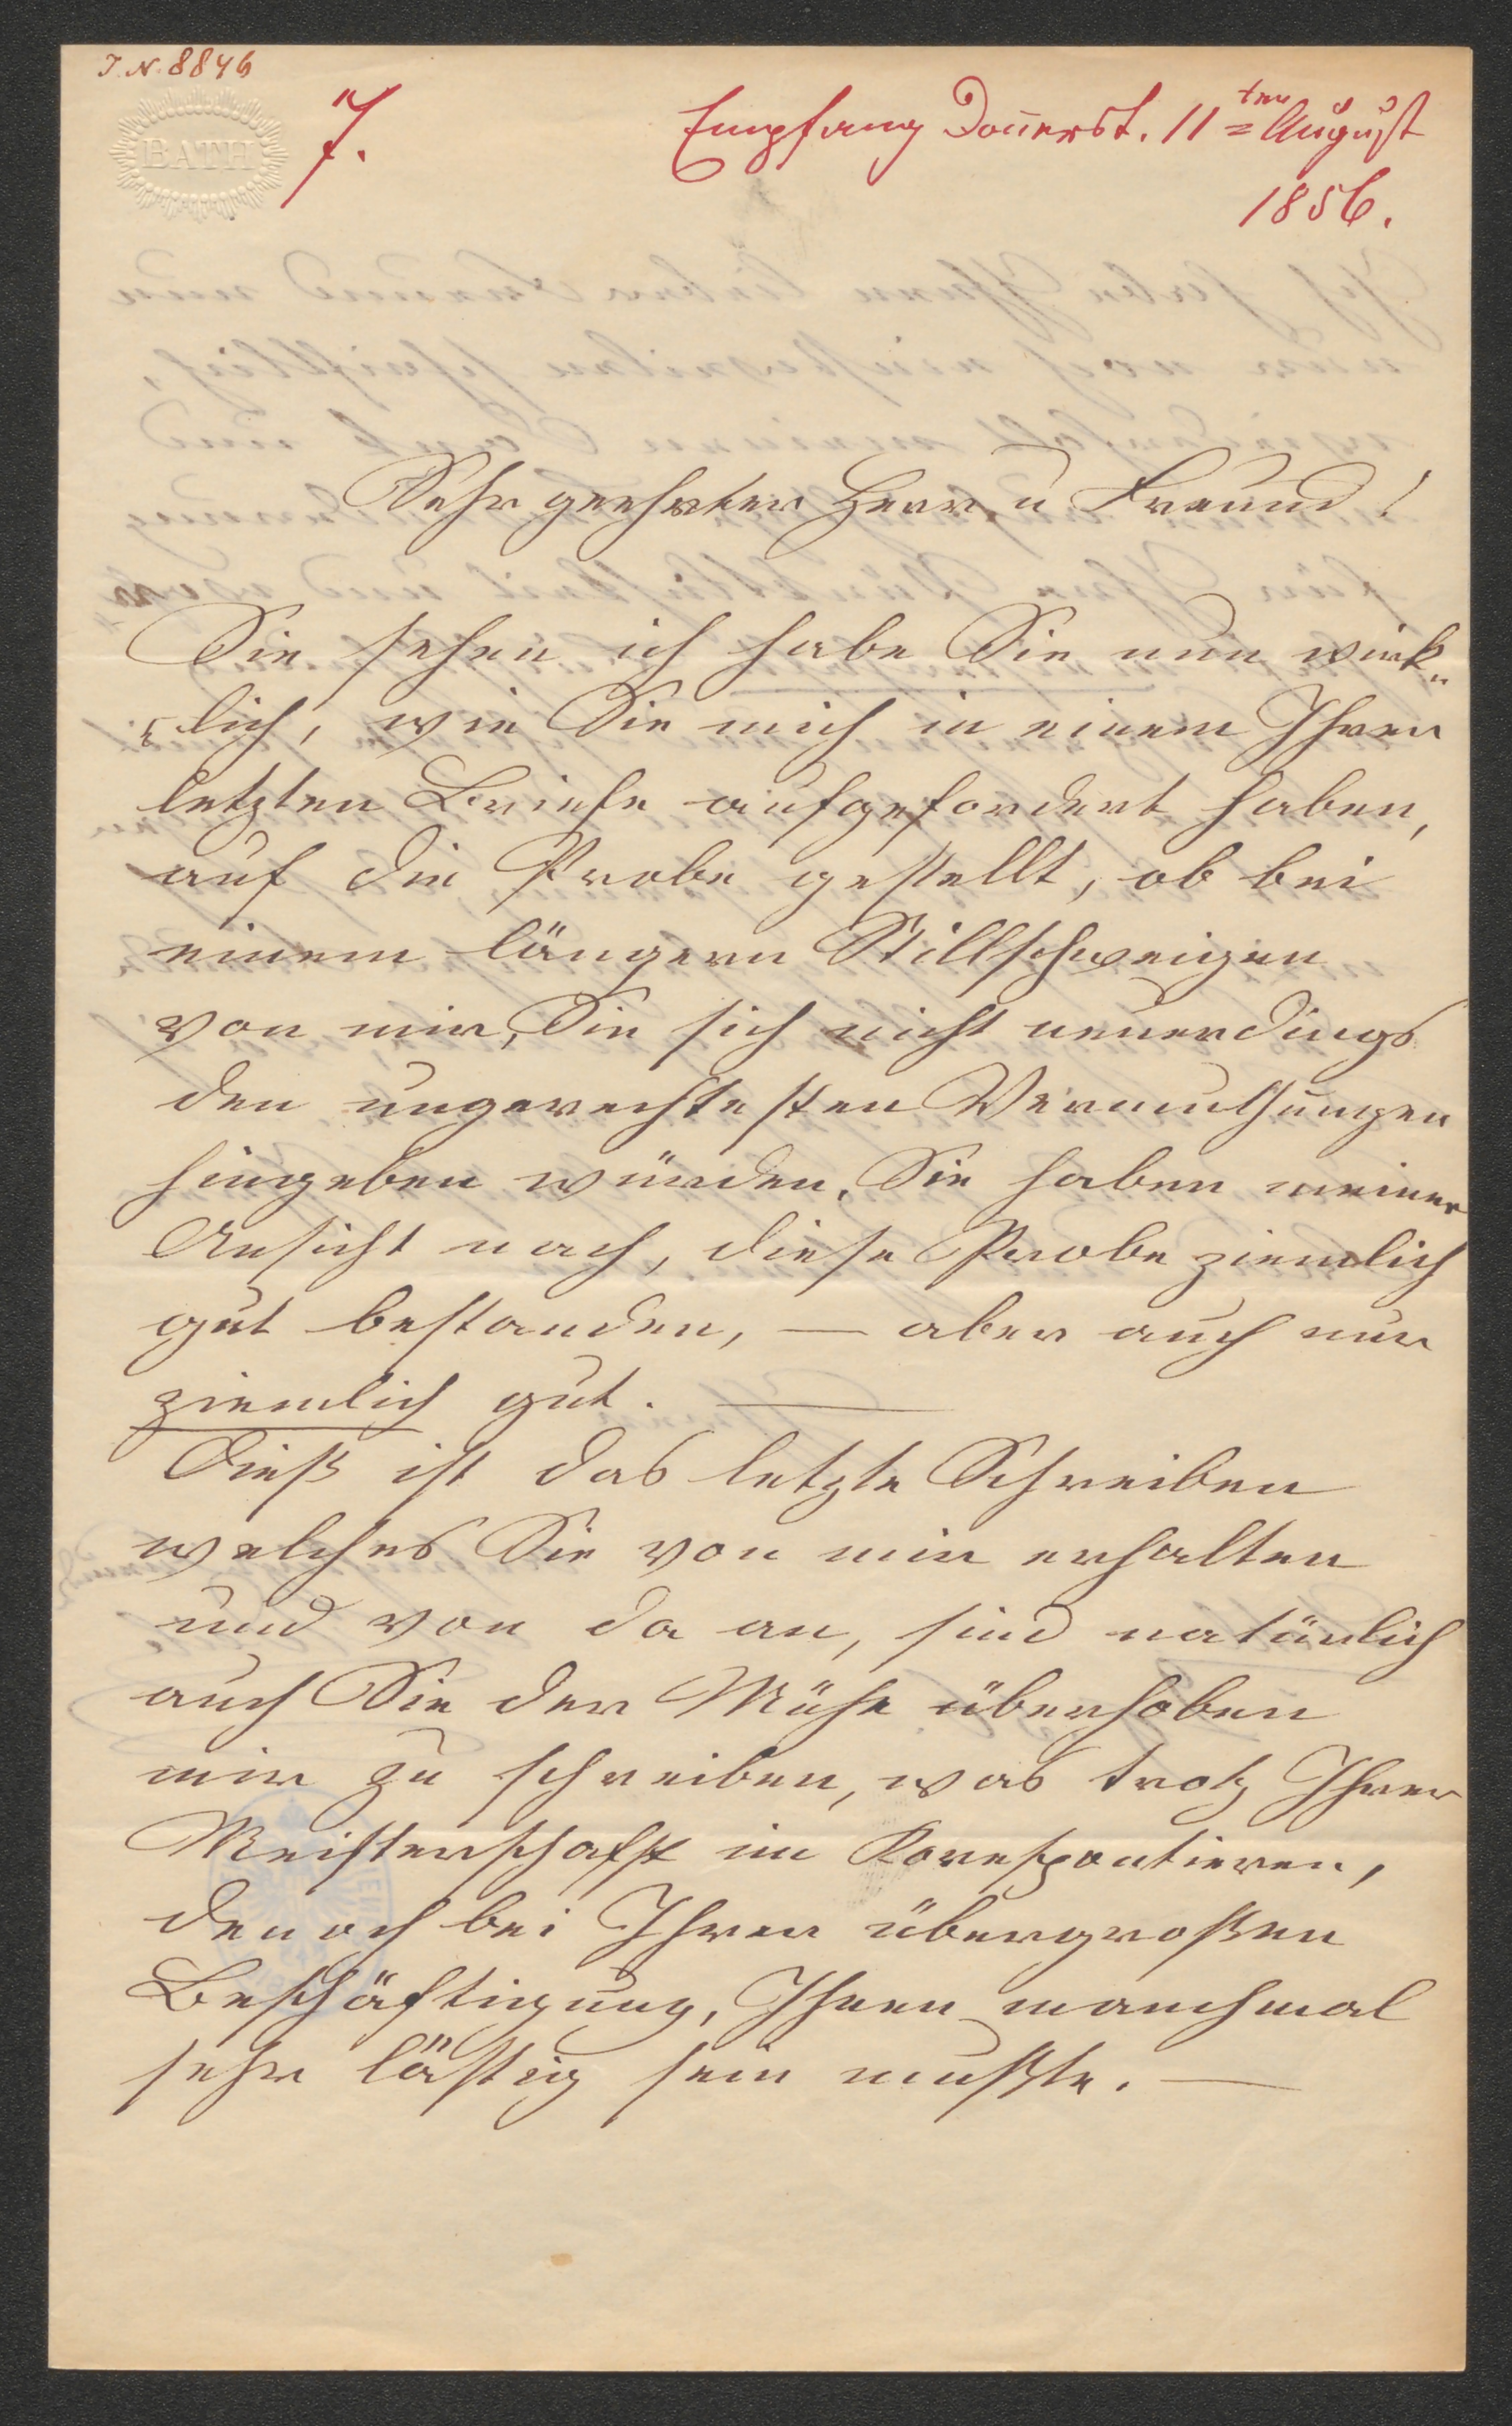 I. N. 8846
BATH
7.
Empfang Donnerst. 11ten August
1856.
Sehr geehrter Herr u Freund!
Sie sehen ich habe Sie nun wirk„
„lich, wie Sie mich in einem Ihrer
letzten Briefe aufgefordert haben,
auf die Probe gestellt, ob bei
einem längern Stillschweigen
von mir, Sie sich nicht neuerdings
den ungerechtesten Vermuthungen
hingeben würden. Sie haben meiner
Ansicht nach, diese Probe ziemlich
gut bestanden, — aber auch nur
ziemlich gut. —
Dieß ist das letzte Schreiben
welches Sie von mir erhalten
und von da an, sind natürlich
auch Sie der Mühe überhoben
mir zu schreiben, was trotz Ihrer
Meisterschafft im Korespontieren,
denoch bei Ihrer übergroßen
Beschäftigung, Ihnen manchmal
sehr lästig sein mußte. —